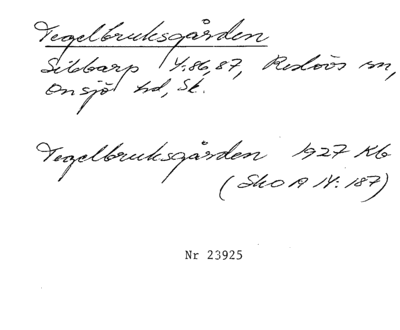 Tegelbruksgården
Sibbarp 4:86,87, Reslövs sn,
Onsjö hd, Sk.
Tegelbruksgården 1927 Kb
(SkO A IV: 187)
Nr 23925